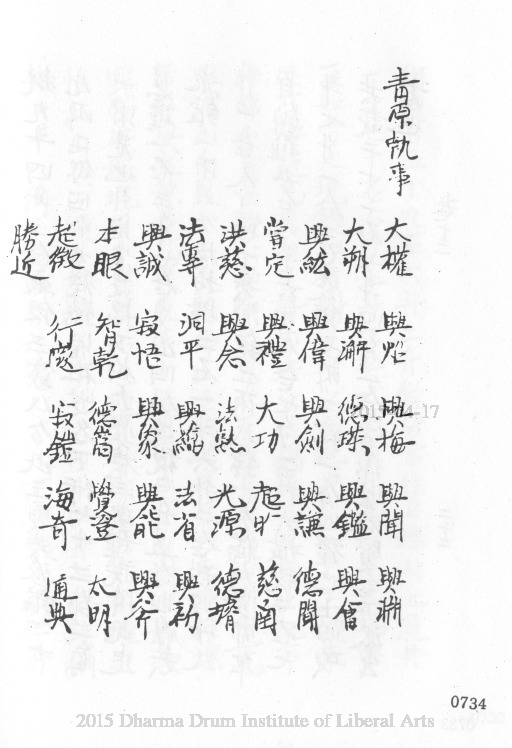 青原執事
大權 興焰 興梅 興聞 興淵
大朔 興澥 德珠 興鑑 興會
興紘 興偉 興劍 興謙 德聞
當定 興禮 大功 超旷 慈甬
洪慈 興念 法熱 光源 德增
法專 洞平 興 法省 興初
興誠 寂悟 興象 興能 興斧
本眼 智乾 德 覺澄 太明
起微 行 寂鎧 海奇 通典
勝近
2015-04-17
0734
2015 Dharma Drum Institute of Liberal Arts